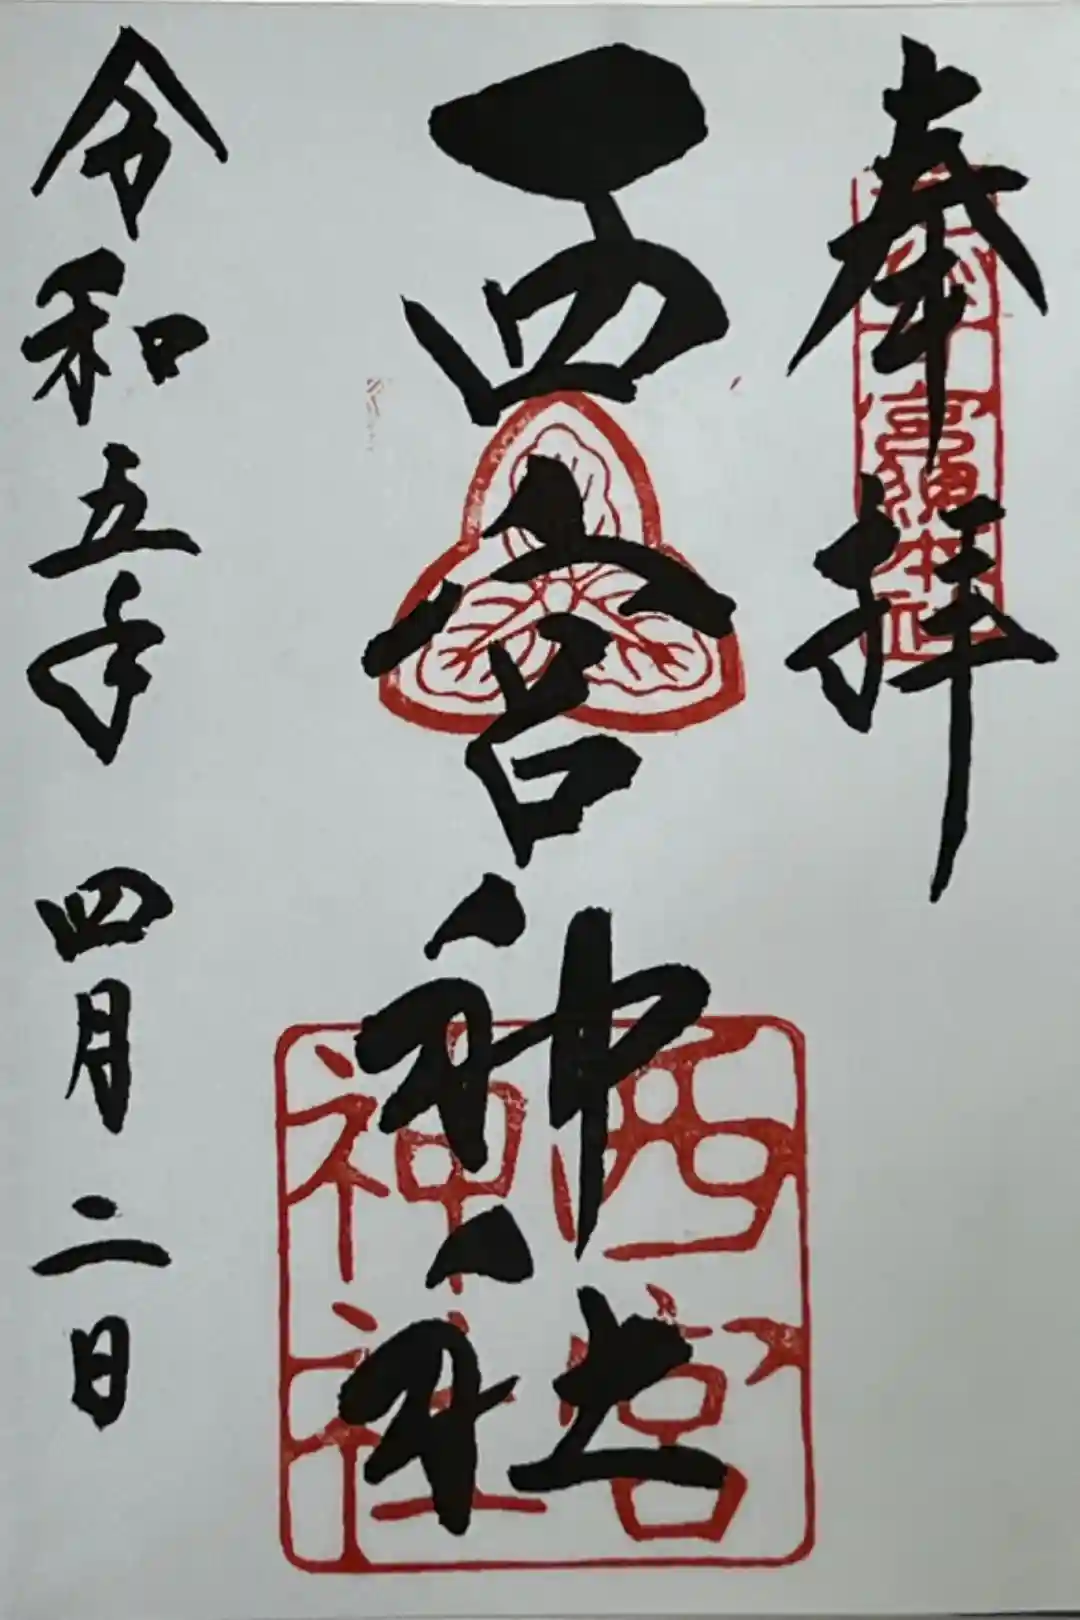 奉拝
西宮神社
令和五年 四月二日
西宮神社